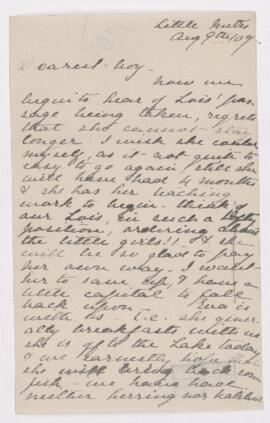 Little Metis
Aug 9th/09
Dearest boy -
Now we
begin to hear of Lois' pas-
sage being taken, regrets
that she cannot stay
longer. I wish she could
myself, as it's not quite so
easy to go again, still she
will have had 4 months
& she has her teaching
work to begin - think of
our Lois, in such a
position, ordering about
the little girls!! & she
will be so glad to pay
her own way - I want
her to save up, & have a
little capital to fall
back upon. Eva is
with us - i.e. she gener-
ally breakfasts with us
she is off to the Lake today
& we earnestly hope that
she will bring back some
fish - we have had
neither herring nor halibut